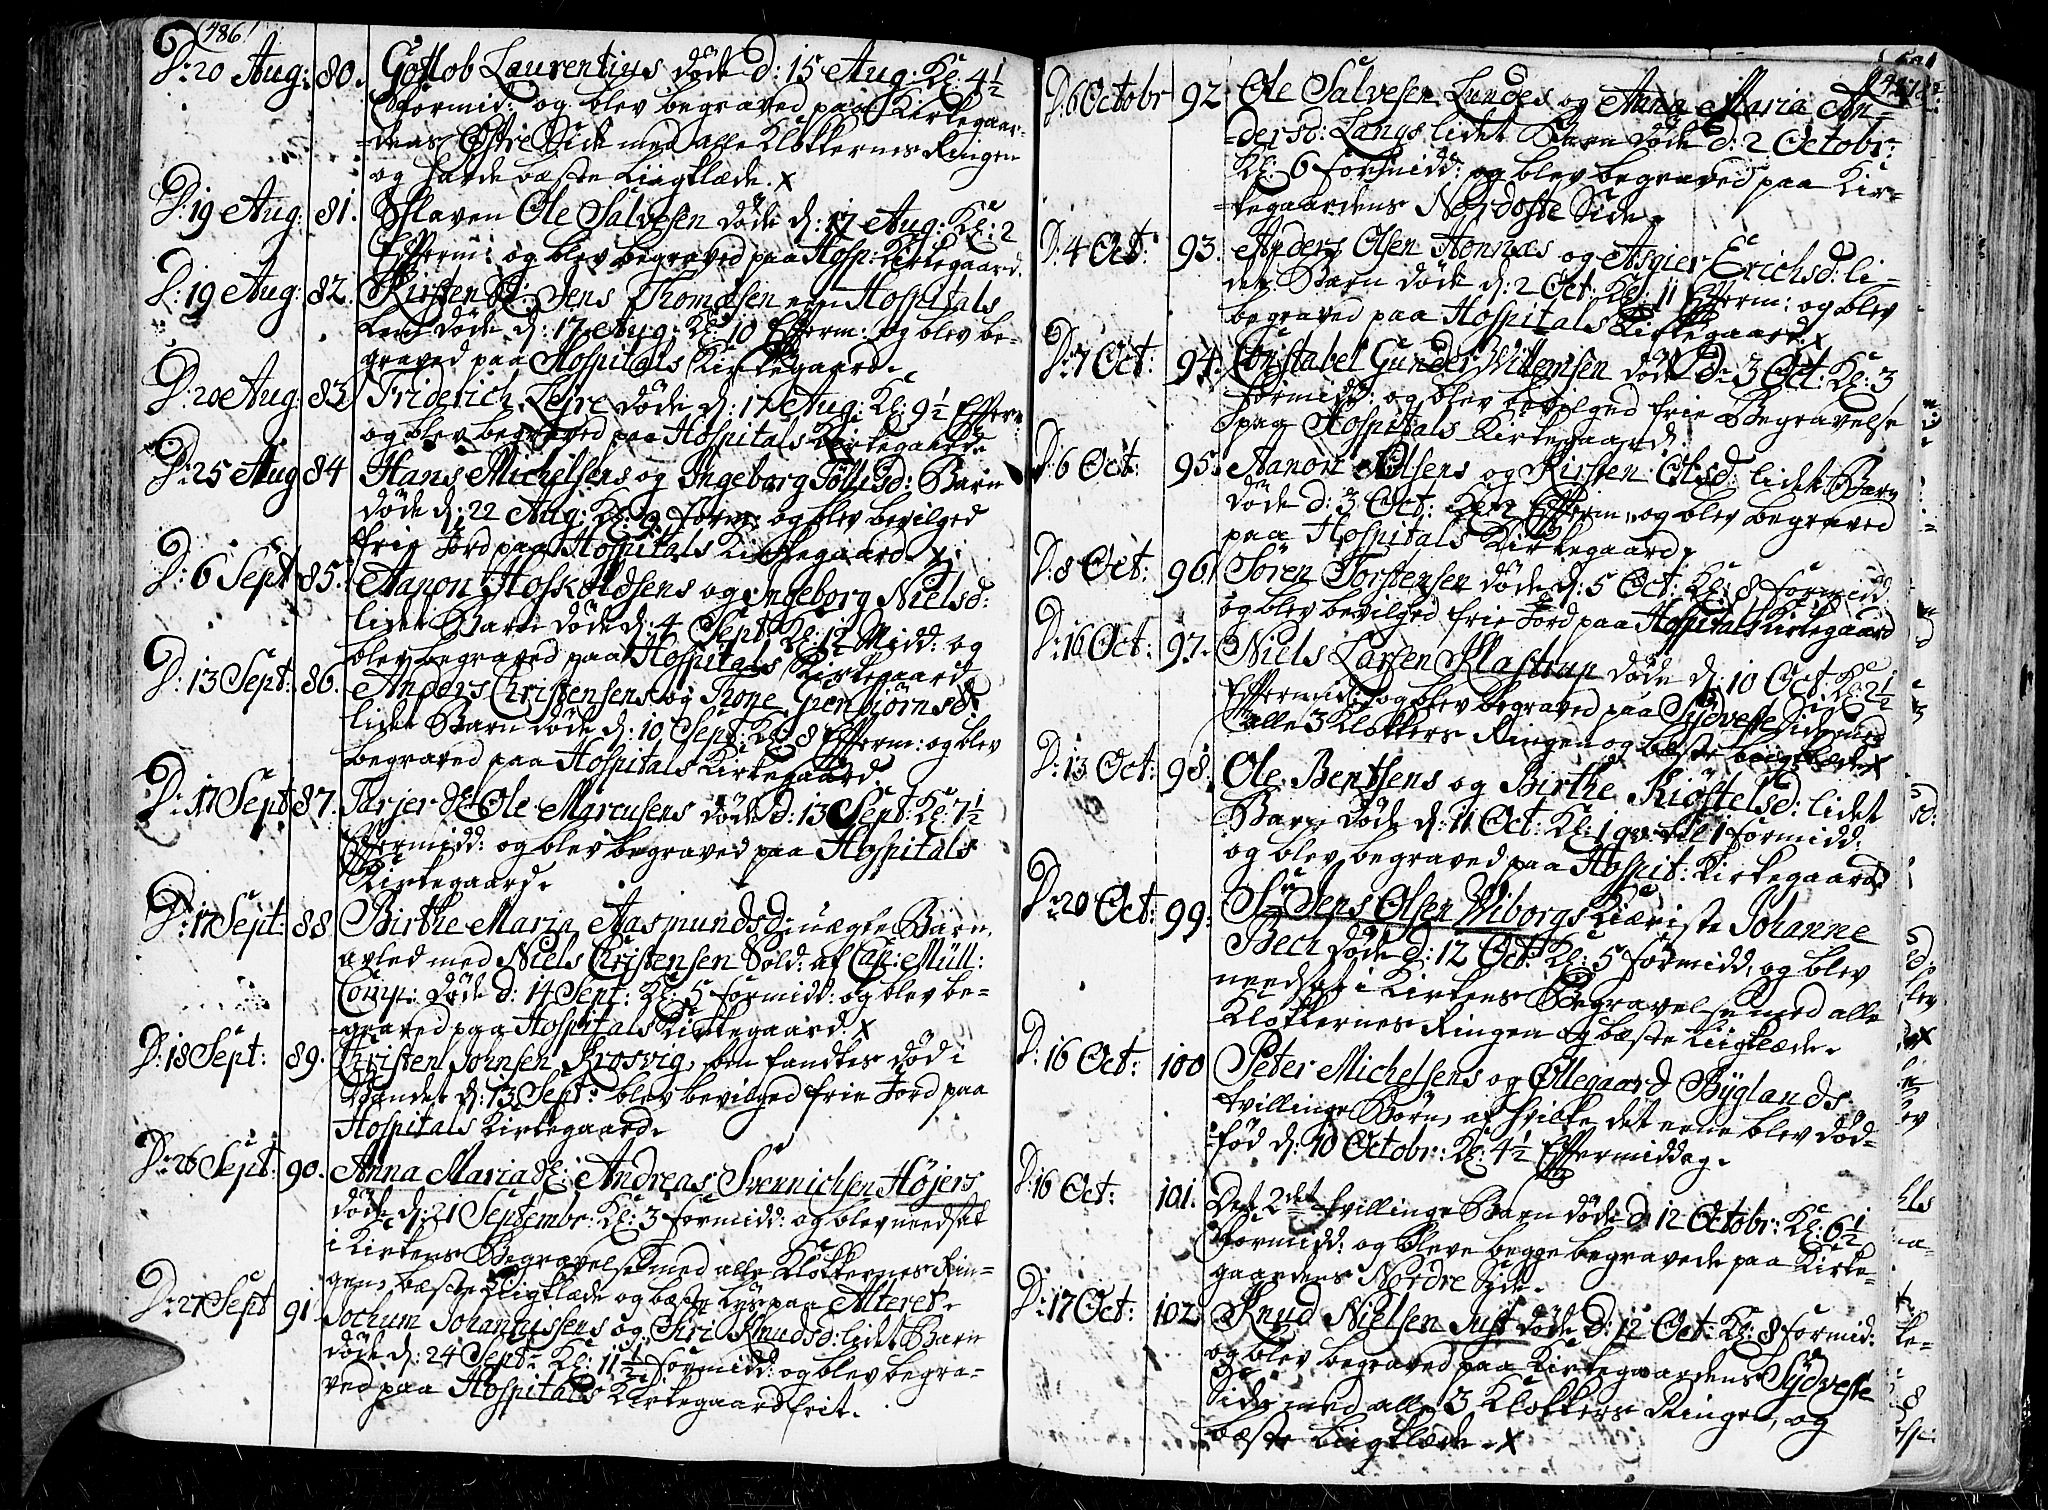 (486)
D: 20 Aug: 80. Gotlob Laurentius døde d: 15 Aug: Kl: 4½
Formid: og blev begraved paa Kirkegaar-
=dens Østre Side med alle Klokkernes Ringen
og havde beste Liigklæde. X
D: 19 Aug: 81. Slaven Ole Salvesen døde d: 17 Aug: Kl: 2
Efterm: og blev begraved paa Hosp: Kirkegaard.
D: 19 Aug: 82. Kirsten Sl: Jens Thomesen een Hospitals
Lem døde d: 17 Aug: Kl: 10 Efterm: og blev be-
graved paa Hospitals Kirkegaard.
D: 20 Aug: 83. Friderich Lejre døde d: 17 Aug: Kl: 9½ Efterm
og blev begraved paa Hospitals Kirkegaard
D: 25 Aug 84 Hans Michelsens og Ingeborg Tollisd: Barn
døde d: 22 Aug: Kl: 9 Form: og blev bevilged
frie Jord paa Hospitals Kirkegaard. X
D: 6 Sept 85. Aanon Hoskoldsens og Ingeborg Nielsd:
lidet Barn døde d: 4 Sept: Kl: 12 Midd: og
blev begraved paa Hospitals Kirkegaard
D: 13 Sept: 86. Anders Christensens og Thone Gunbjörnsd:
lidet Barn døde d: 10 Sept: Kl: 8 Efterm: og blev
begraved paa Hospitals Kirkegaard.
D: 17 Sept 87. Tarjer Sl: Ole Marcusens døde d: 13 Sept: Kl: 7½
Eftermidd: og blev begraved paa Hospitals
Kirkegaard.
D: 17 Sept: 88. Birthe Maria Aasmundsd: uægte Barn
avled med Niels Christensen Sold: af Cap: Müll:
Comp: døde d: 14 Sept: Kl: 5 Formidd: og blev be-
=graved paa Hospitals Kirkegaard. X
D: 18 Sept: 89. Christen Johnsen Krosvig, som fandtes død i
Vandet d: 13 Sept: blev bevilged frie Jord paa
Hospitals Kirkegaard.
D: 26 Sept: 90. Anna Maria Sl: Andreas Svennichsen Højers
døde d: 21 Septembr: Kl: 3 Formidd: og blev needsat
i Kirkens Begravelse med alle Klokkernes Rin-
gen, beste Liigklæde og beste Lys paa Alteret.
D: 27 Sept 91. Jochum Johannissens og Siri Knudsd: lidet Barn
døde d: 24 Sept: Kl: 11½ Formidd: og blev begra-
ved paa Hospitals Kirkegaard frit.
D: 6 Octobr 92. Ole Salvesen Lundes og Anna Maria An-
=dersd: Langs lidet Barn døde d: 2 Octobr:
Kl: 6 Formidd: og blev begraved paa Kir-
=kegaardens Nordoste Side.
D: 4 Oct: 93. Anders Olsen Honnæs og Asgier Erichsd: li-
det Barn døde d: 2 Oct: Kl: 11 Efterm: og blev
begraved paa Hospitals Kirkegaard. X
D: 7 Oct: 94. Constabel Gunder Willemsen døde d: 3 Oct: Kl: 3
Formidd: og blev bevilged frie Begravelse
paa Hospitals Kirkegaard.
D: 6 Oct: 95. Aanon Olsens og Kirsten Olsd: lidet Barn
døde d: 3 Oct: Efterm: og blev begraved
paa Hospitals Kirkegaard.
D: 8 Oct: 96. Sören Torstensen døde d: 5 Oct: Kl: 8 Formidd
og blev bevilged frie Jord paa Hospitals Kirkegaard
D: 16 Oct: 97. Niels Larsen Klastrup døde d: 10 Oct: Kl: 2½
Eftermid: og blev begraved paa Sydveste Side med
alle 3 Klokkers Ringen og beste Liigklæde X
D: 13 Oct: 98. Ole Bentsens og Birthe Kiöstelsd: lidet
Barn døde d: 11 Oct: Kl: 1 qv: til 1 Formidd:
og blev begraved paa Hospit: Kirkegaard.
D: 20 Oct: 99. Sr Jens Olsen Wiborgs Kiæriste Johanne
Bech døde d: 12 Oct: Kl: 5 Formidd: og blev
needsat i Kirkens Begravelse med alle
Klokkernes Ringen og beste Liigklæde.
D: 16 Oct: 100 Peter Michelsens og Ollegaard Byglands
tvillinge Børn, af hvilke det eene blev død-
=fød d: 10 Octobr: Kl: 4½ Eftermiddag.
D: 16 Oct: 101. Det 2det tvillinge Barn døde d: 12 Octobr: Kl: 6½
Formidd: og bleve begge begravede paa Kirke-
gaardens Nordre Side.
D: 17 Oct: 102. Knud Nielsen Just døde d: 12 Oct: Kl: 8 Formid:
og blev begraved paa Kirkegaardens Sydveste
Side med alle 3 Klokkers Ringen, og
beste Liigklæde. X